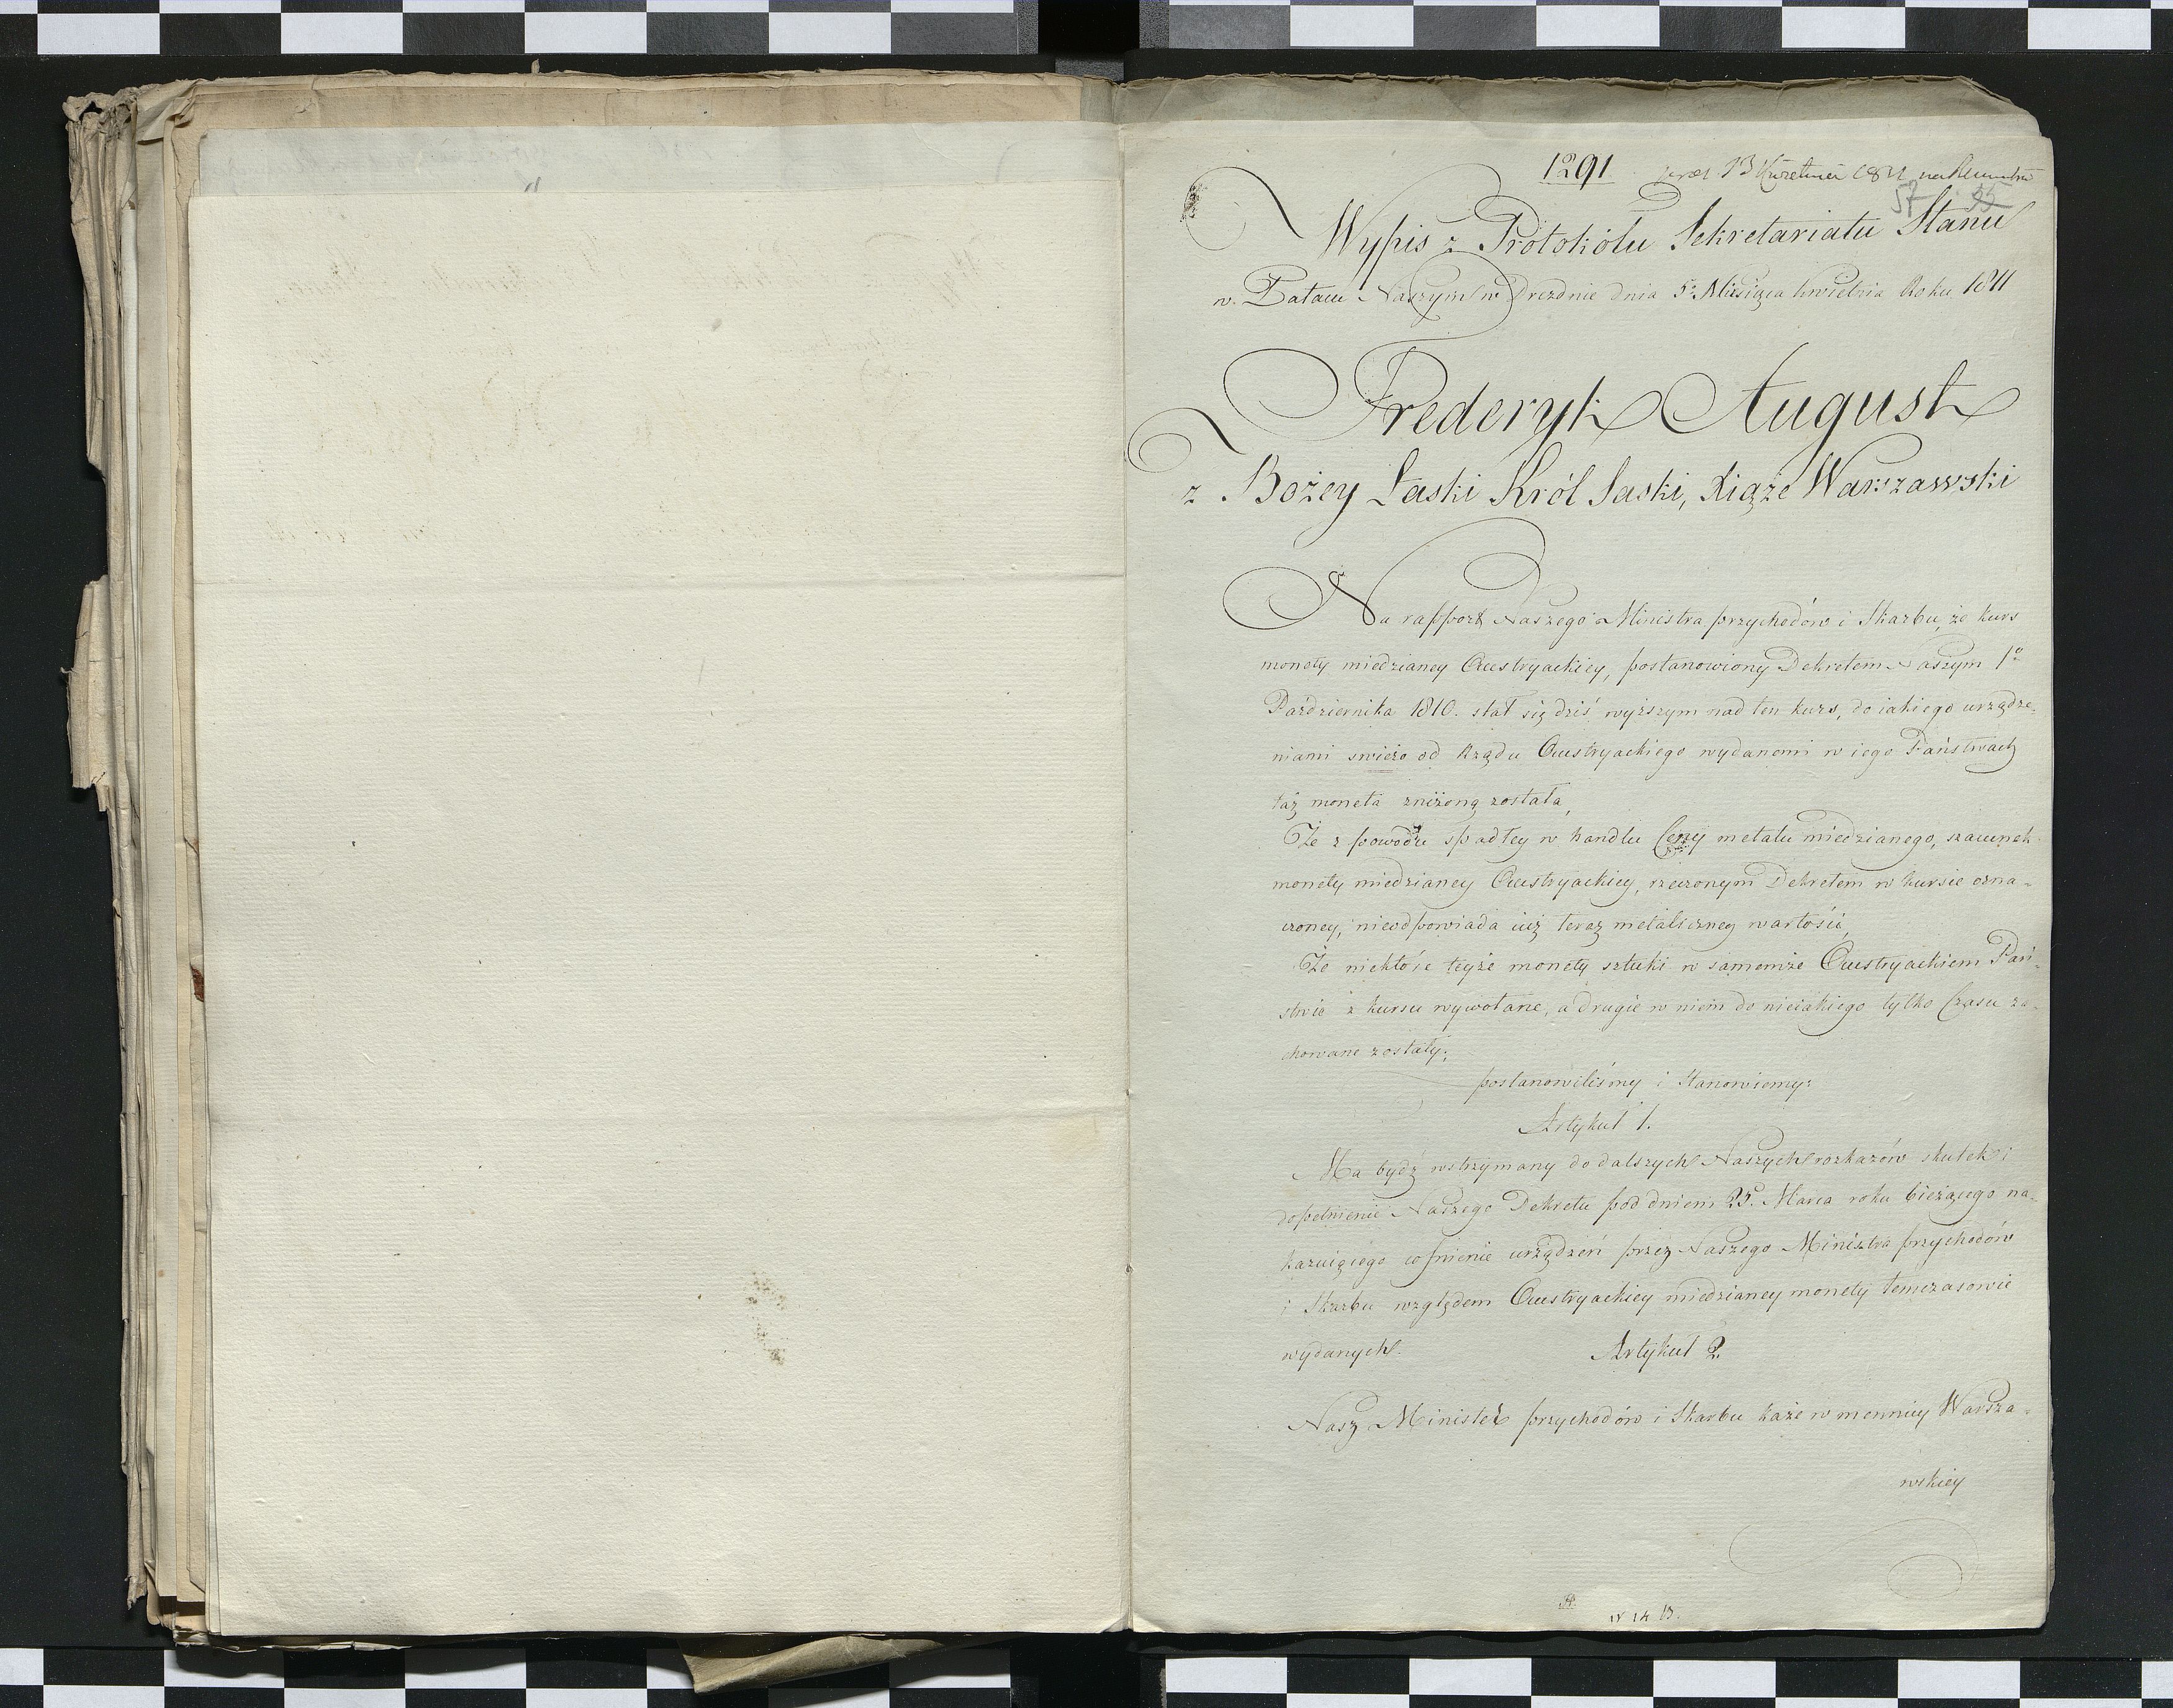 1291 præs 13 Kwietnia 1811
57 55
Wypis z Protokółu Sekretariatu Stanu
w Pałacu Naszym w Dreźnie dnia 5º Miesiąca kwietnia Roku 1811
Frederyk August
z Bożey Łaski Król Saski, Xiąże Warszawski
Na rapport Naszego Ministra przychodów i Skarbu, że kurs
monety miedzianey Austryackiey, postanowiony Dekretem Naszym 1º
Października 1810. stał się dziś wyższym nad ten kurs, do iakiego urządze-
niami swieżo od Rządu Austryackiego wydanemi w iego Państwach
taż moneta zniżoną została,
Że z powodu spadłey w handlu Ceny metalu miedzianego, szacunek
monety miedzianey Austryackiey, rzeczonym Dekretem w kursie ozna-
czoney, nieodpowiada iuż teraz metaliczney wartości,
Że niektóre teyże monety sztuki w samemże Austryackiem Pań-
stwie z kursu wywołane, a drugie w niem do nieiakiego tylko Czasu za-
chowane zostały;
postanowiliśmy i Stanowiemy:
Artykuł 1.
Ma bydź wstrzymany do dalszych Naszych rozkazów skutek i
dopełnienie Naszego Dekretu pod dniem 25. Marca roku bieżącego na-
kazuiącego cofnienie urządzeń przez Naszego Ministra przychodów
i Skarbu względem Austryackiey miedzianey monety temczasowie
wydanych.
Artykuł 2
Nasz Minister przychodów i Skarbu każe w mennicy Warsza-
wskiey